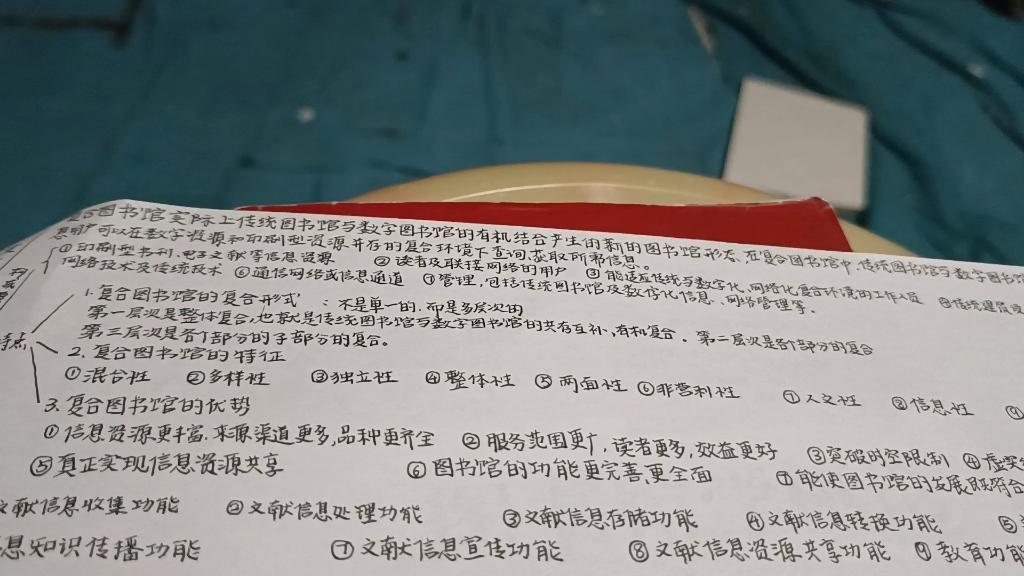 图书馆实际上传统图书馆与数字图书馆的有机结合产生的新的图书馆形态,在复合图书馆中,传统图书馆与数字图书馆
用户可以在数字资源和印刷型资源并存的复合环境下查询、获取所需信息。
①印刷型书刊、电子文献等信息资源 ②读者及联接网络的用户 ③能适应传统与数字化、网络化复合环境的工作人员
网络技术及传统技术 ⑥通信网络或信息通道 ⑦管理,包括传统图书馆及数字化信息、网络管理等。
特点
1.复合图书馆的复合形式:不是单一的,而是多层次的
第一层次是整体复合,也就是传统图书馆与数字图书馆的共存互补,有机复合。第二层次是各个部分的复合
第三层次是各个部分的子部分的复合。
2.复合图书馆的特征
①混合性 ②多样性 ③独立性 ④整体性 ⑤两面性 ⑥非营利性 ⑦人文性 ⑧信息性 ⑨
3.复合图书馆的优势
①信息资源更丰富,来源渠道更多,品种更齐全 ②服务范围更广,读者更多,效益更好 ③突破时空限制 ④虚
⑤真正实现信息资源共享 ⑥图书馆的功能更完善,更全面 ⑦能使图书馆的发展既符合
文献信息收集功能 ②文献信息处理功能 ③文献信息存储功能 ④文献信息转换功能 ⑤
息知识传播功能 ⑦文献信息宣传功能 ⑧文献信息资源共享功能 ⑨教育功能